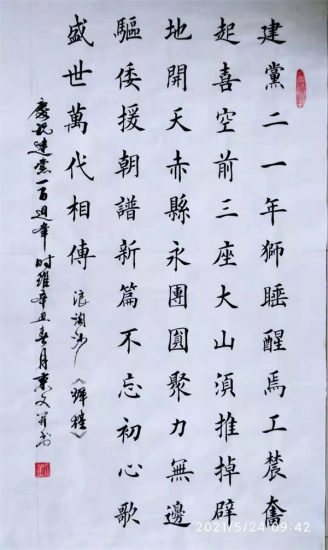 建黨二一年獅睡醒焉工農奮
起喜空前三座大山湏推掉辟
地開天赤縣永團圓聚力無邊
驅倭援朝譜新篇不忘初心歌
盛世萬代相傳 浪淘沙
慶祝建黨一百週年時維辛丑春月
2021/5/24 09:42